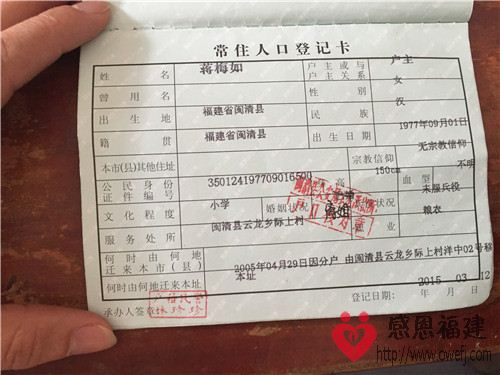 常住人口登记卡
姓名 蒋梅如 户主或与户主关系 户主
曾用名 性别 女
出生地 福建省闽清县 民族 汉
籍贯 福建省闽清县 出生日期 1977年09月01日
本市(县)其他住址 宗教信仰 无宗教信仰
公民身份证件编号 350124197709016500 身高 150cm 血型 不明
文化程度 小学 婚姻状况 离婚 兵役状况 未服兵役
服务处所 闽清县云龙乡际上村 粮农
何时由何地迁来本市(县) 2005年04月29日因分户 由闽清县云龙乡际上村洋中02号移
何时由何地迁来本址 本址
承办人签章 登记日期: 2015年03月12日
感恩福建
http://www.owefj.com